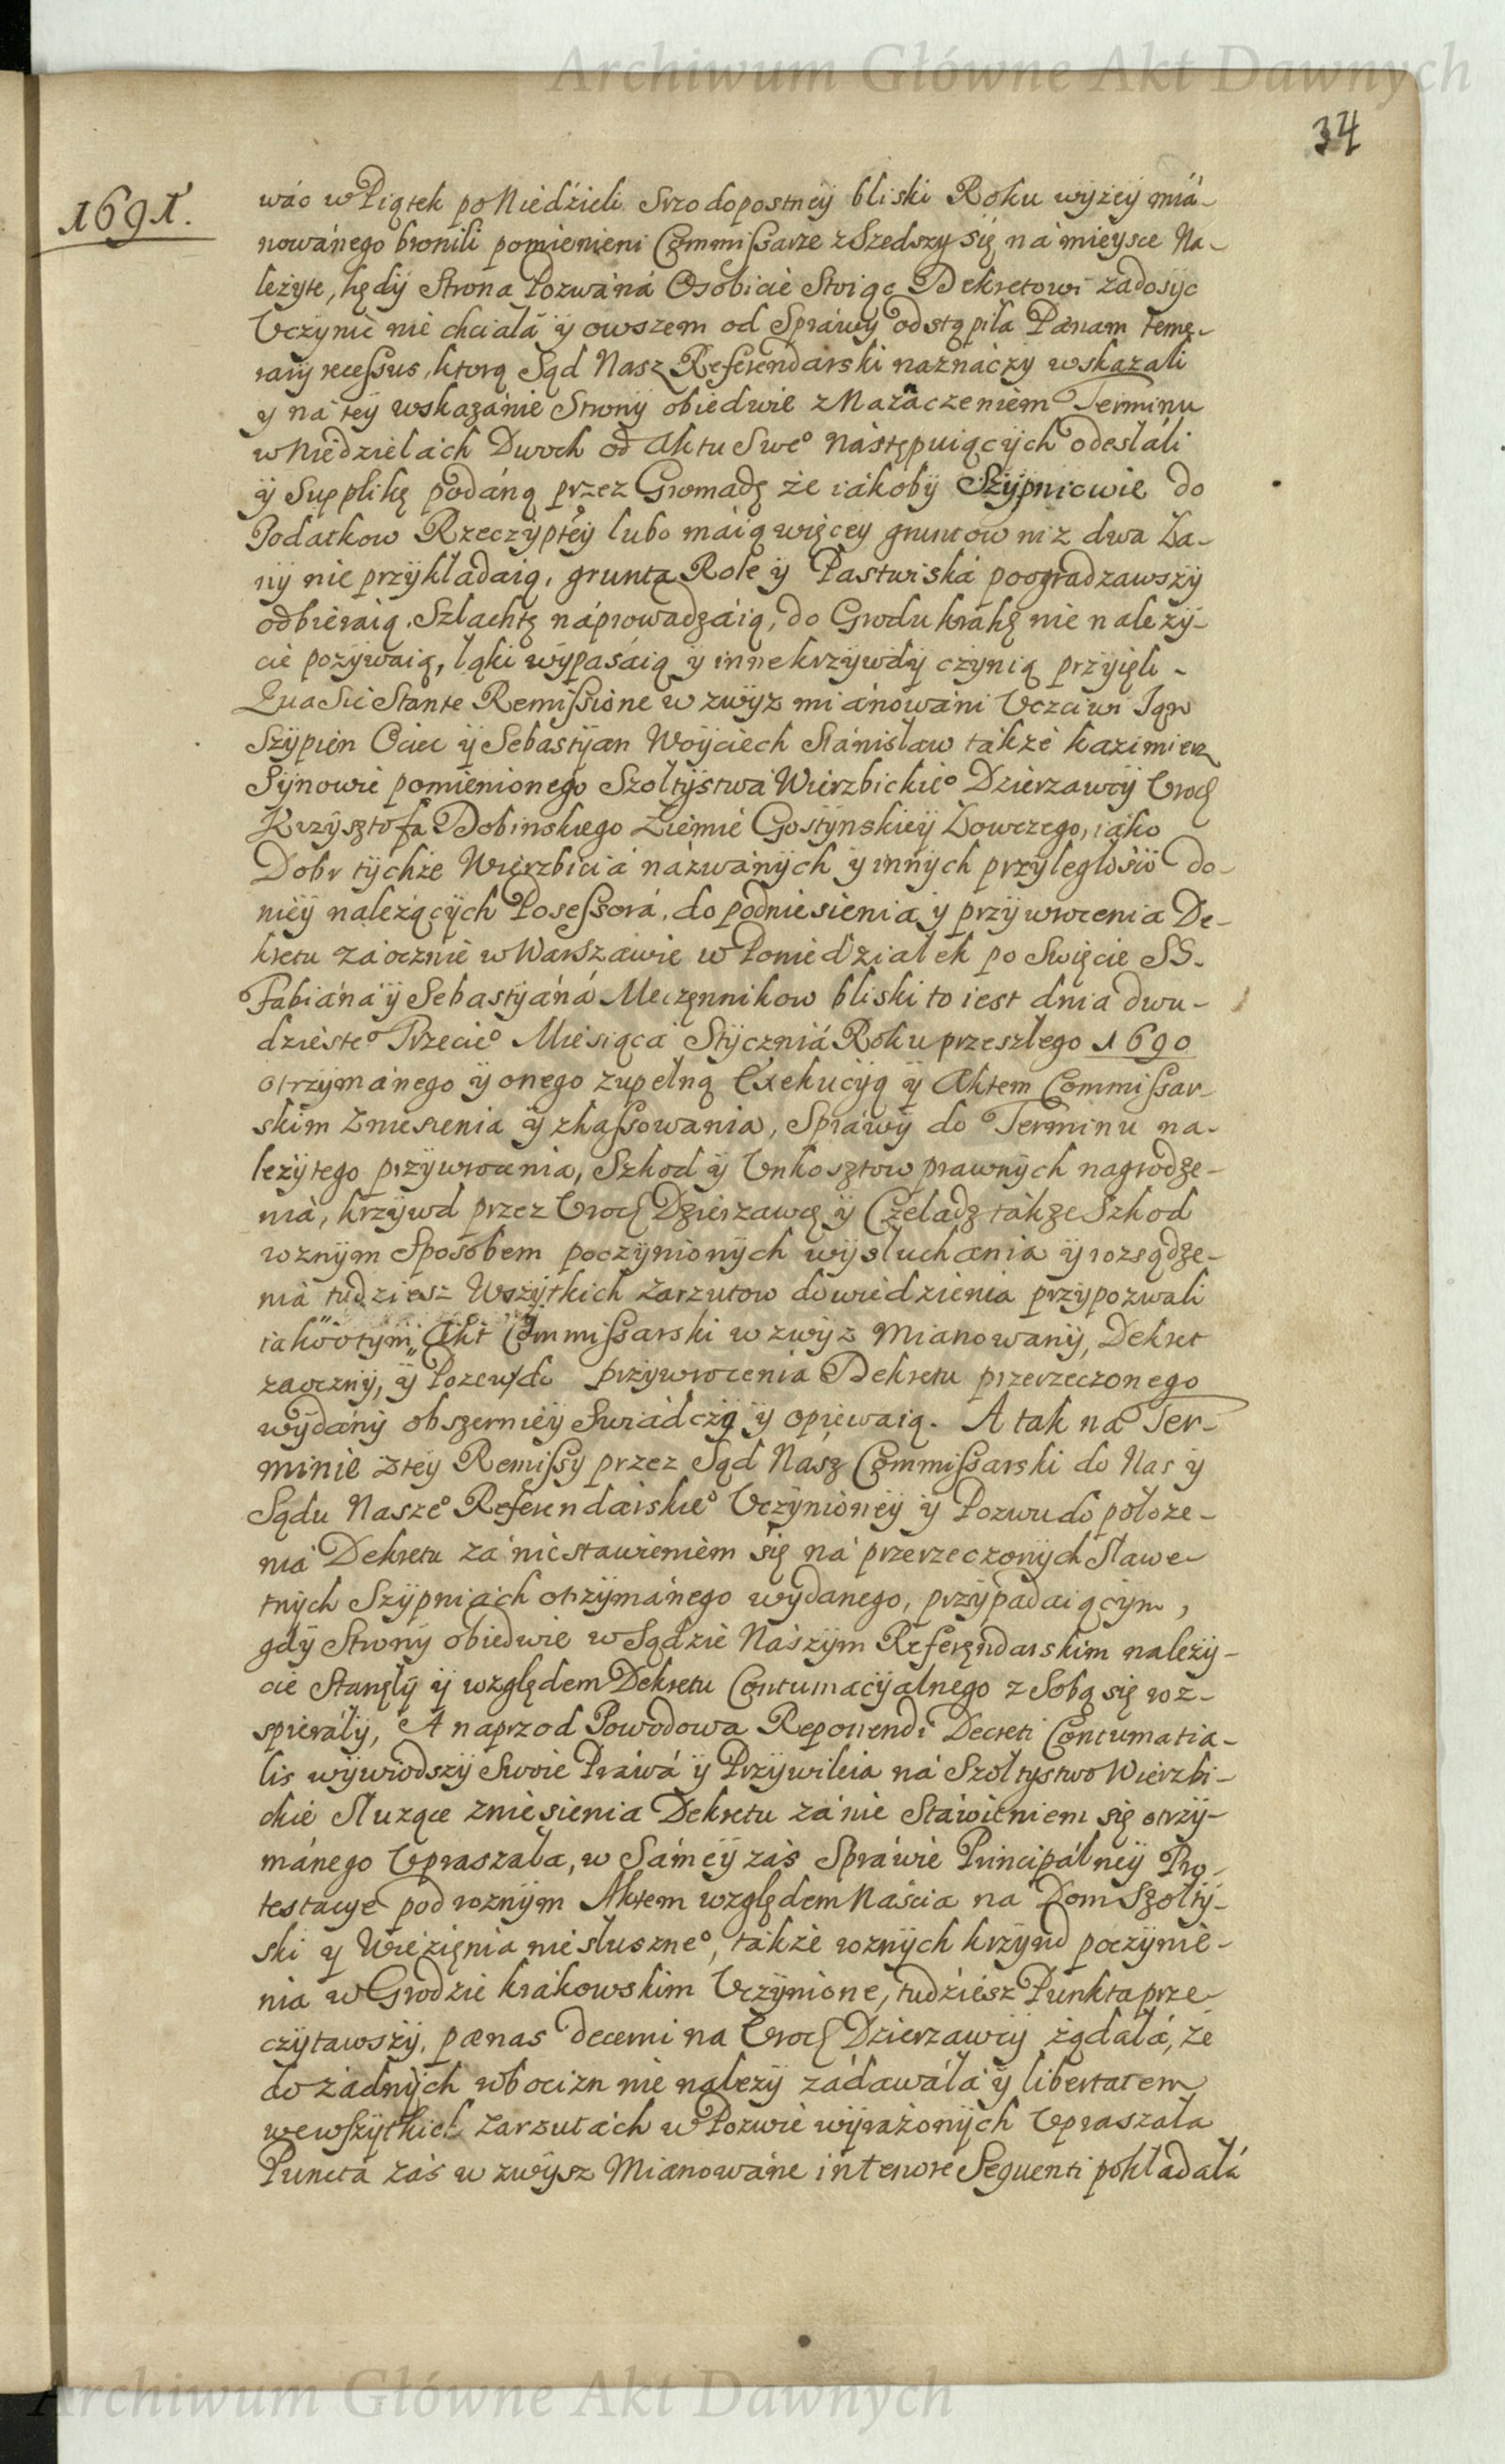 Archiwum Główne Akt Dawnych
34
1691.
wáć w Piątek po Niedźieli Srzodopostney bliski Roku wyżey miá-
nowánego bronili pomienieni Commissarze zszedszy się ná mieysce Na-
leżyte, kędy Strona Pozwáná Osobićie Stoiąc Dekretowi zadosyc
Vczynić nie chciałá ÿ owszem od Spráwy odstąpiła Pænam teme-
rarÿ recessus, ktorą Sąd Nasz Referendarski náznáczy wskazáli
y ná tey wskazánie Strony obiedwie z Náznáczeniem Terminu
w Niedzielách Dwoch od Aktu Sweᵒ nástępuiącÿch odesłáli
ÿ Supplikę podáną przez Gromadę że iákoby Szypniowie do
Podatkow Rzeczÿptey lubo máią więcey gruntow niż dwa Ła-
nÿ nie przykładáią, grunta Role ÿ Pastwiská poogradzawszy
odbieráią. Szlachtę náprowadzáią, do Grodu krakȩ nie należÿ-
cie pozÿwaią, łąki wypasáią ÿ inne krzÿwdÿ czÿnią przyięli-
Qua Sic Stante Remissione w zwÿż miánowáni Vczciwi Jan
Szÿpien Ociec ÿ Sebastÿan Woÿciech Stánisław tákże kazimierz
Sÿnowie pomienionego Szołtÿstwá Wierzbickieᵒ Dzierzawcÿ Vroȩ
Krzÿsztofa Dobinskiego Ziemie Gostÿnskieÿ Łowczego, iáko
Dobr tÿchże Wierzbiciá názwánÿch ÿ innÿch przÿległośći do-
nieÿ należącÿch Possessorá, do podniesienia ÿ przÿwrocenia De-
kretu záocznie w Warszáwie w Poniedźiałek po Swięcie SS.
Fabiáná ÿ Sebastÿáná Męczennikow bliski to iest dnia dwu-
dziesteᵒ Trzecieᵒ Miesiącá Stÿczniá Roku przeszłego 1690
otrzÿmánego ÿ onego zupełną Exekucÿą ÿ Aktem Commissar-
skim Zniesienia ÿ skassowania, Spráwÿ do Terminu na-
leżÿtego przÿwrocenia, Szkod ÿ Vnkosztow prawnÿch nagrodze-
niá, krzÿwd przez Vroȩ Dzierzawcę ÿ Czeladz tákże Szkod
roznÿm Sposobem poczÿnionÿch wÿsłuchania ÿ rozsądze-
niá tudziesz Wszÿtkich Zarzutow dowiedzienia przÿpozwali
iáko o tÿm Akt Commissarski w zwÿż Mianowanÿ, Dekret
záocznÿ, ÿ Pozew do przÿwrocenia Dekretu przerzeczonego
wÿdánÿ obszernieÿ Swiádczą ÿ opiewaią. A tak na Ter-
minie z teÿ Remissÿ przez Sąd Nász Commissarski do Nas ÿ
Sądu Naszeᵒ Referendárskieᵒ Vczÿnioneÿ ÿ Pozwu do położe-
niá Dekretu zá nie stawieniem się ná przerzeczonÿch Sławe-
tnÿch Szÿpniách otrzÿmánego wÿdanego, przÿpadaiącÿm,
gdÿ Stronÿ obiedwie w Sądzie Nászÿm Referendarskim należÿ-
cie Stanęłÿ ÿ względem Dekretu Contumacÿalnego z Sobą się roz-
spierálÿ, A naprzod Powodowa Reponendi Decreti Contumatia-
lis wÿwiodszÿ Swoie Práwá ÿ Przÿwileia ná Szołtÿstwo Wierzbi-
ckie Służące zniesienia Dekretu zá nie Stáwieniem się otrzÿ-
mánego Vpraszałá, w Sámeÿ záś Spráwie Principálneÿ Pro-
testacÿe pod roznÿm Aktem względem Náścia na Dom Szołtÿ-
ski ÿ Więzienia niesłuszneᵒ, tákże roznÿch krzÿwd poczÿnie-
nia w Grodzie krákowskim Vczÿnione, tudziesz Punkta prze-
czÿtawszÿ, pœnas decerni na Vroȩ Dzierzawcÿ żądáłá, że
do żadnÿch robocizn nie należÿ zádawáłá ÿ libertatem
we wszÿtkich Zarzutách w Pozwie wÿrażonÿch Vpraszałá
Punctá záś w zwÿsz Mianowáne in tenore Sequenti pokłádałá
Archiwum Główne Akt Dawnych